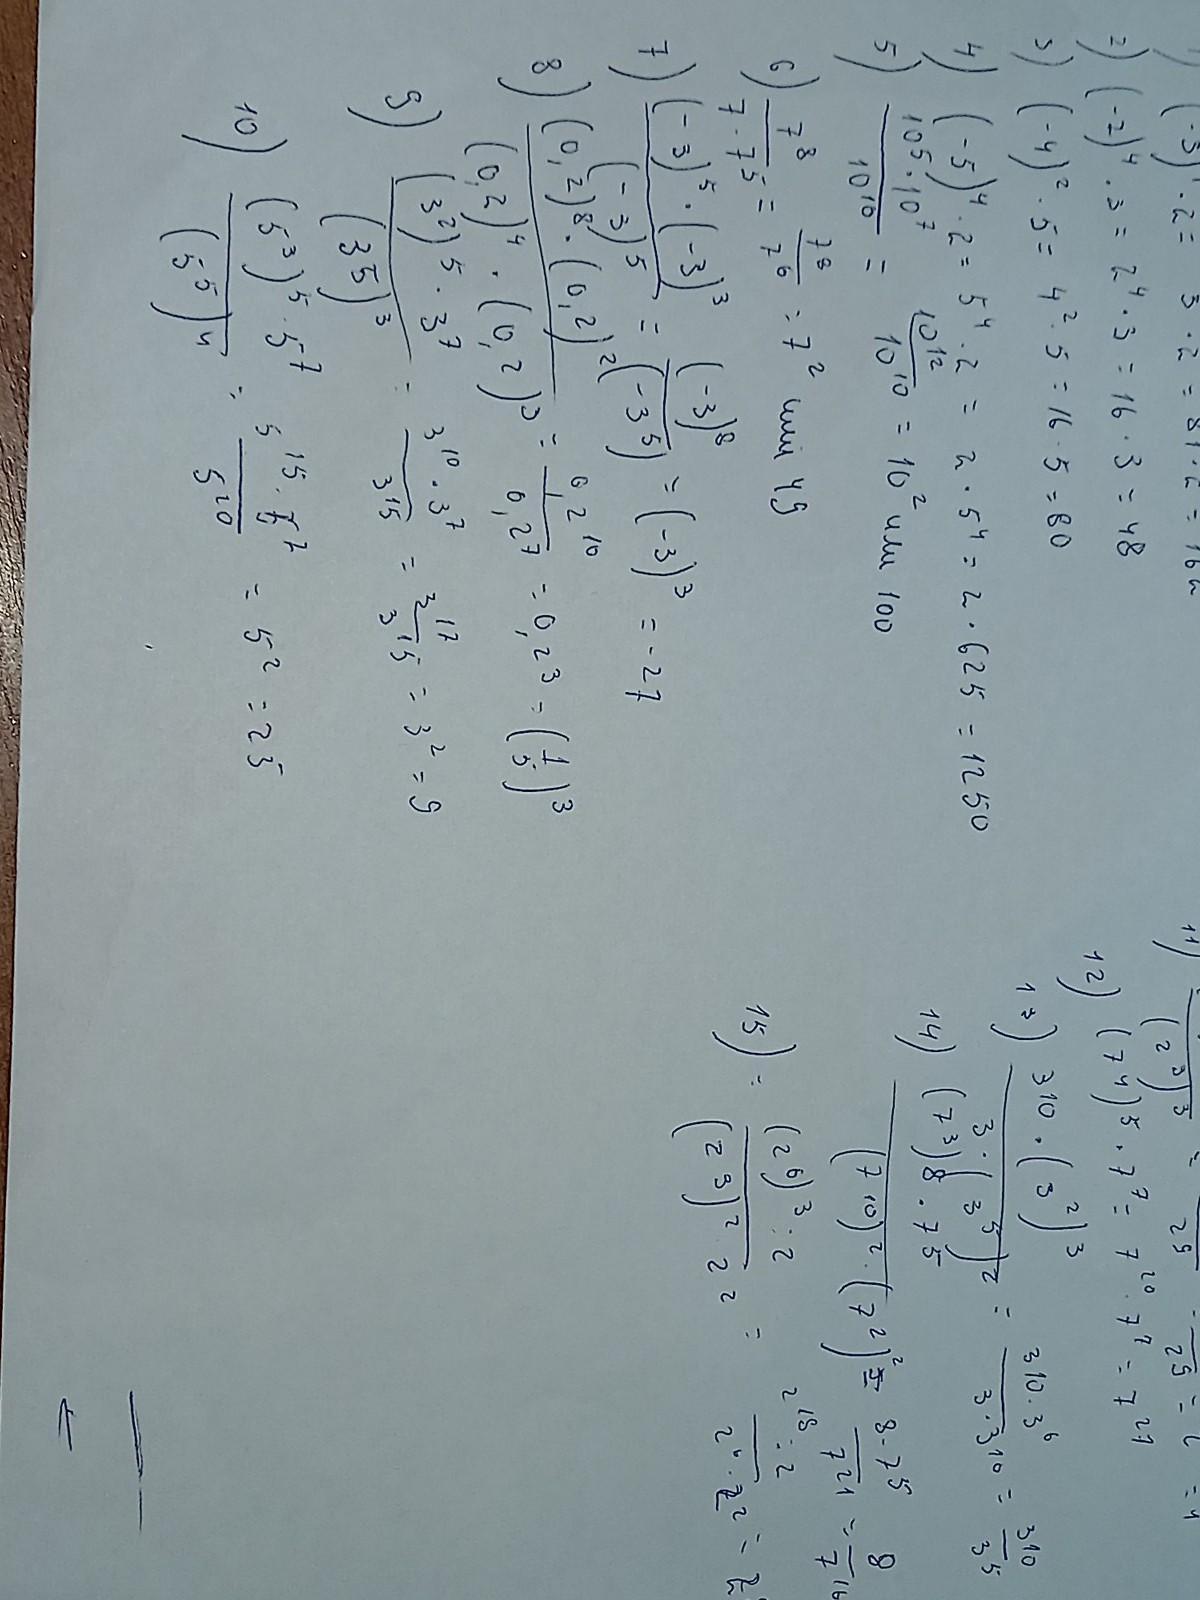 (-3)⁴ · 2 = 3 · 2 = 81 · 2 = 162
2) (-2)⁴ · 3 = 2⁴ · 3 = 16 · 3 = 48
3) (-4)² · 5 = 4² · 5 = 16 · 5 = 80
4) (-5)⁴ · 2 = 5⁴ · 2 = 2 · 5⁴ = 2 · 625 = 1250
5) 10⁵ · 10⁷ / 10¹⁰ = 10¹² / 10¹⁰ = 10² или 100
6) 7⁸ / 7 · 7⁵ = 7⁸ / 7⁶ = 7² или 49
7) (-3)⁵ · (-3)³ / (-3)⁵ = (-3)⁸ / (-3⁵) = (-3)³ = -27
8) (0,2)⁸ · (0,2)² / (0,2)⁴ · (0,2)³ = 0,2¹⁰ / 0,2⁷ = 0,2³ = (1/5)³
9) (3²)⁵ · 3⁷ / (3⁵)³ = 3¹⁰ · 3⁷ / 3¹⁵ = 3¹⁷ / 3¹⁵ = 3² = 9
10) (5³)⁵ · 5⁷ / (5⁵)⁴ = 5¹⁵ · 5⁷ / 5²⁰ = 5² = 25
11) (2³)³ = 2⁹
12) (7⁴)⁵ · 7⁷ = 7²⁰ · 7⁷ = 7²⁷
13) 3¹⁰ · (3²)³ / 3 · (3⁵)² = 3¹⁰ · 3⁶ / 3 · 3¹⁰ = 3¹⁰ / 3⁵
14) (7³)8 · 7⁵ / (7¹⁰)² · (7²)² = 8 · 7⁵ / 7²¹ = 8 / 7¹⁶
15) = (2⁶)³ : 2 / (2³)² 2² = 2¹⁸ : 2 / 2⁶ · 2² =